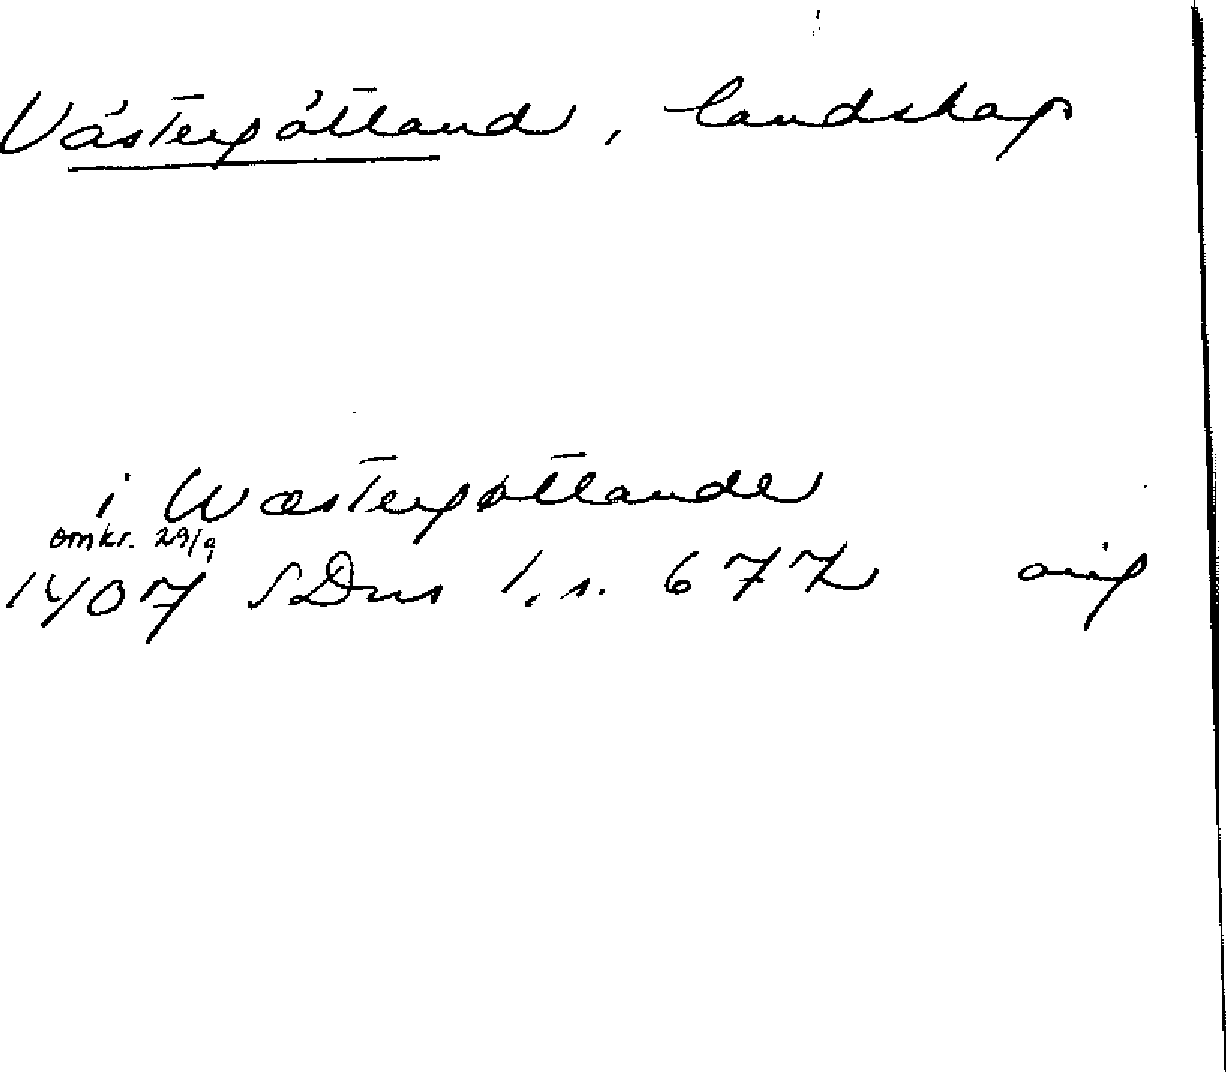 Västergötland, landskap
i Wæstergøtlande
omkr. 29/9
1407 SDns 1, s. 677 orig